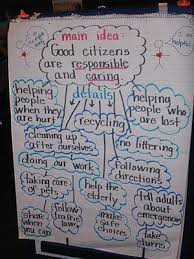 main idea:
Good citizens
are responsible
and caring.
I am
helpful!
details
helping
people
when they
are hurt
recycling
helping
people who
are lost
cleaning up
after ourselves
no littering
doing our work
following
directions
taking care
of pets
help the
elderly
tell adults
about
emergencies
share
when
you can
follow
traffic
laws
make
safe
choices
take
turns